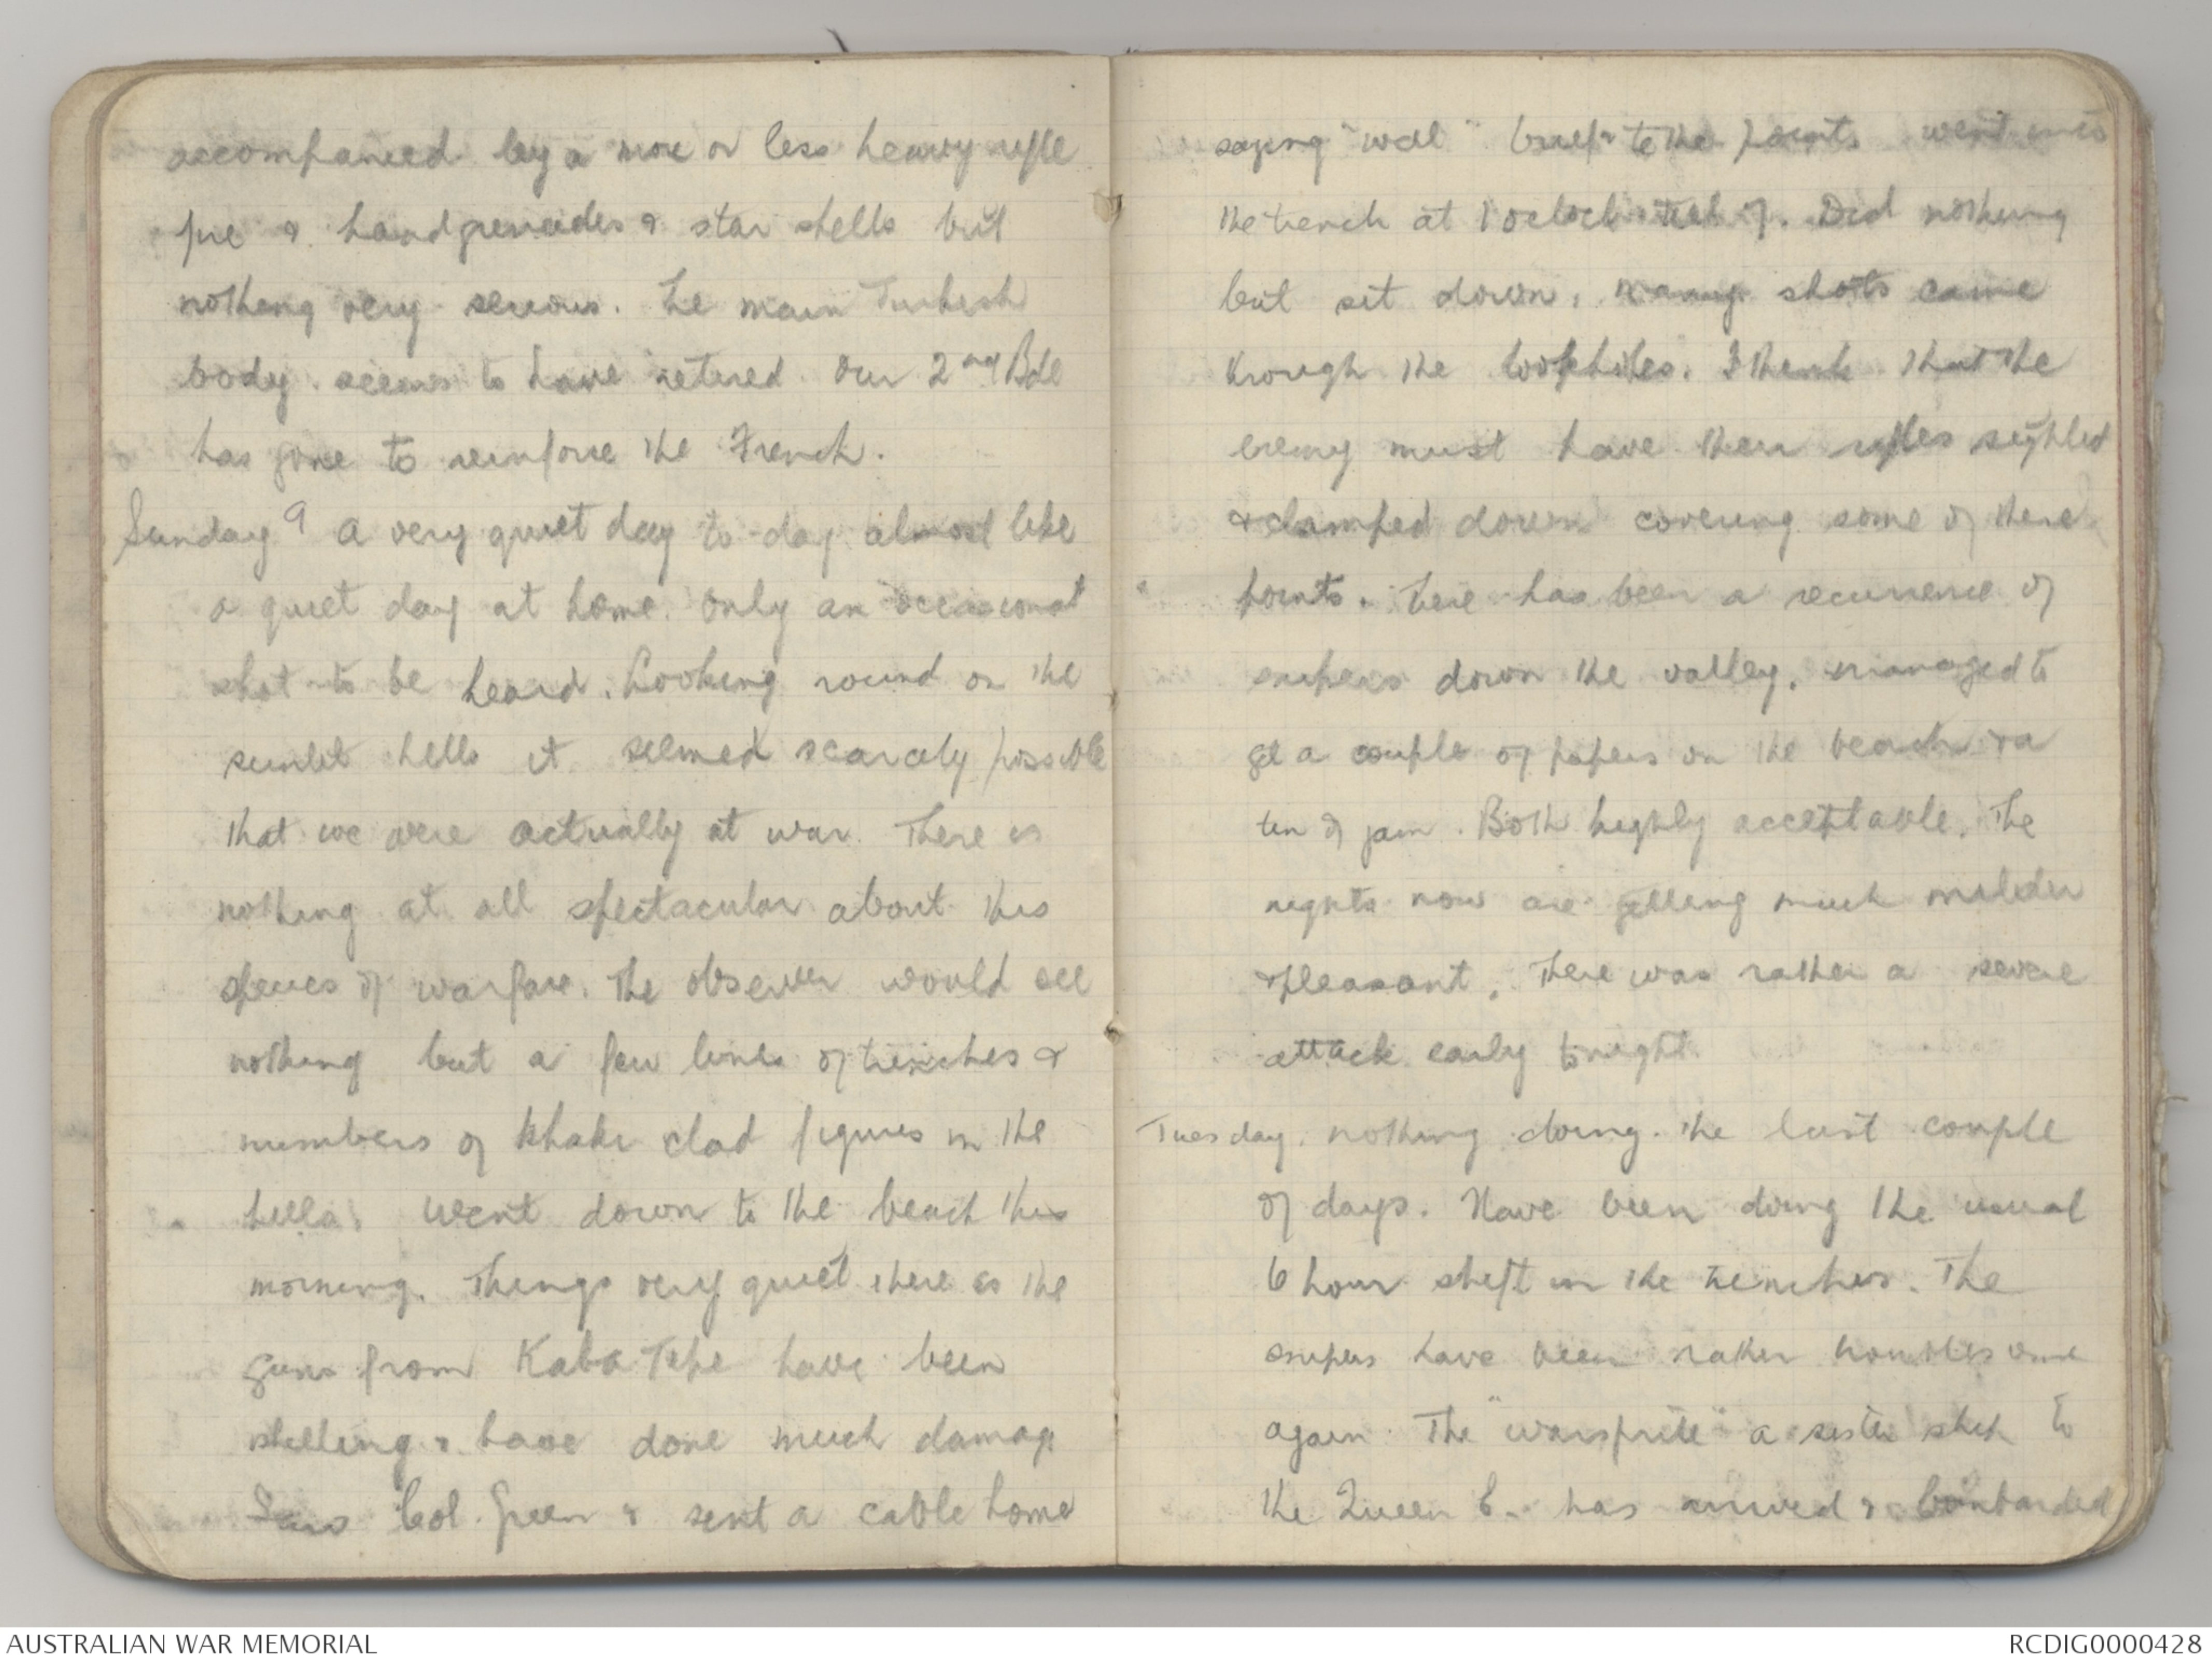 accompanied by a more or less heavy rifle
fire & handgrenades & star shells but
nothing very serious. The main Turkish
body seems to have retired. Our 2nd Bde
has gone to reinforce the French.
Sunday 9 A very quiet day to-day almost like
a quiet day at home. Only an occasional
shot to be heard. Looking round on the
sunlit hills it seemed scarcely possible
that we were actually at war. There is
nothing at all spectacular about this
species of warfare. The observer would see
nothing but a few lines of trenches &
numbers of khaki clad figures in the
hills. Went down to the beach this
morning. Things very quiet there as the
guns from Kaba Tepe have been
shelling & have done much damage
Saw Col. Green & sent a cable home
saying "well" brief & to the point. Went into
the trench at 1 oclock till 7. Did nothing
but sit down. Many shots came
through the loopholes. I think that the
enemy must have their rifles sighted
& clamped down covering some of these
points. There has been a recurrence of
snipers down the valley. Managed to
get a couple of papers on the beach & a
tin of jam. Both highly acceptable. The
nights now are getting much milder
& pleasant. There was rather a severe
attack early tonight.
Tuesday. Nothing doing the last couple
of days. Have been doing the usual
6 hour shift in the trenches. The
snipers have been rather troublesome
again. The "Warsprite" a sister ship to
the Queen E. has arrived & bombarded
AUSTRALIAN WAR MEMORIAL
RCDIG0000428